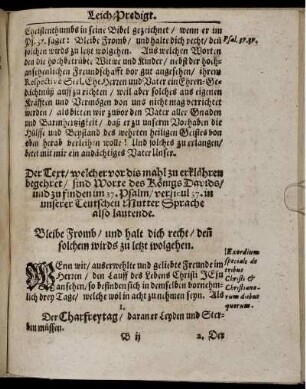 Leich-Predigt.
Christenthumbs in seine Bibel gezeichnet / wenn er im
Ps. 37. saget: Bleibe Fromb / und halte dich recht / deñ
solchen wirds zu letzt wolgehen. Aus welchen Worten
den die hochbetrübte Witwe und Kinder / nebst der hoch-
ansehenlichen Freundschafft vor gut angesehen / ihrem
Respectivè Seel. Ehe-Herren und Vater ein Ehren-Ge-
dächtnüß auff zu richten / weil aber solches aus eigenen
Kräfften und Vermögen von uns nicht mag verrichtet
werden / als bitten wir zuvor den Vater aller Gnaden
und Barmhertzigkeit / daß er zu unserm Vorhaben die
Hülffe und Beystand des wehrten heiligen Geistes von
oben herab verleihen wolle! Und solches zu erlangen /
betet mit mir ein andächtiges Vater Unser.
Psal. 37. 37.
Der Text / welcher vor dis mahl zu erklähren
begehret / sind Worte des Königs Davids /
und zu finden im 37. Psalm / versicul 37. in
unserer Teutschen Mutter Sprache
also lautende.
Bleibe Fromb / und halte dich recht / deñ
solchem wirds zu letzt wolgehen.
WEnn wir / auserwehlte und geliebte Freunde im
Herrn / den Lauff des Lebens Christi JEsu
ansehen / so befinden sich in demselben vornehm-
lich drey Tage / welche wol in acht zu nehmen seyn. Als
Exordium
speciale de
tribus
Christi &
Christiano-
rum diebus
quorum.
1.
Der Charfreytag / daran er Leyden und Ster-
ben müssen.
B ij
2. Der